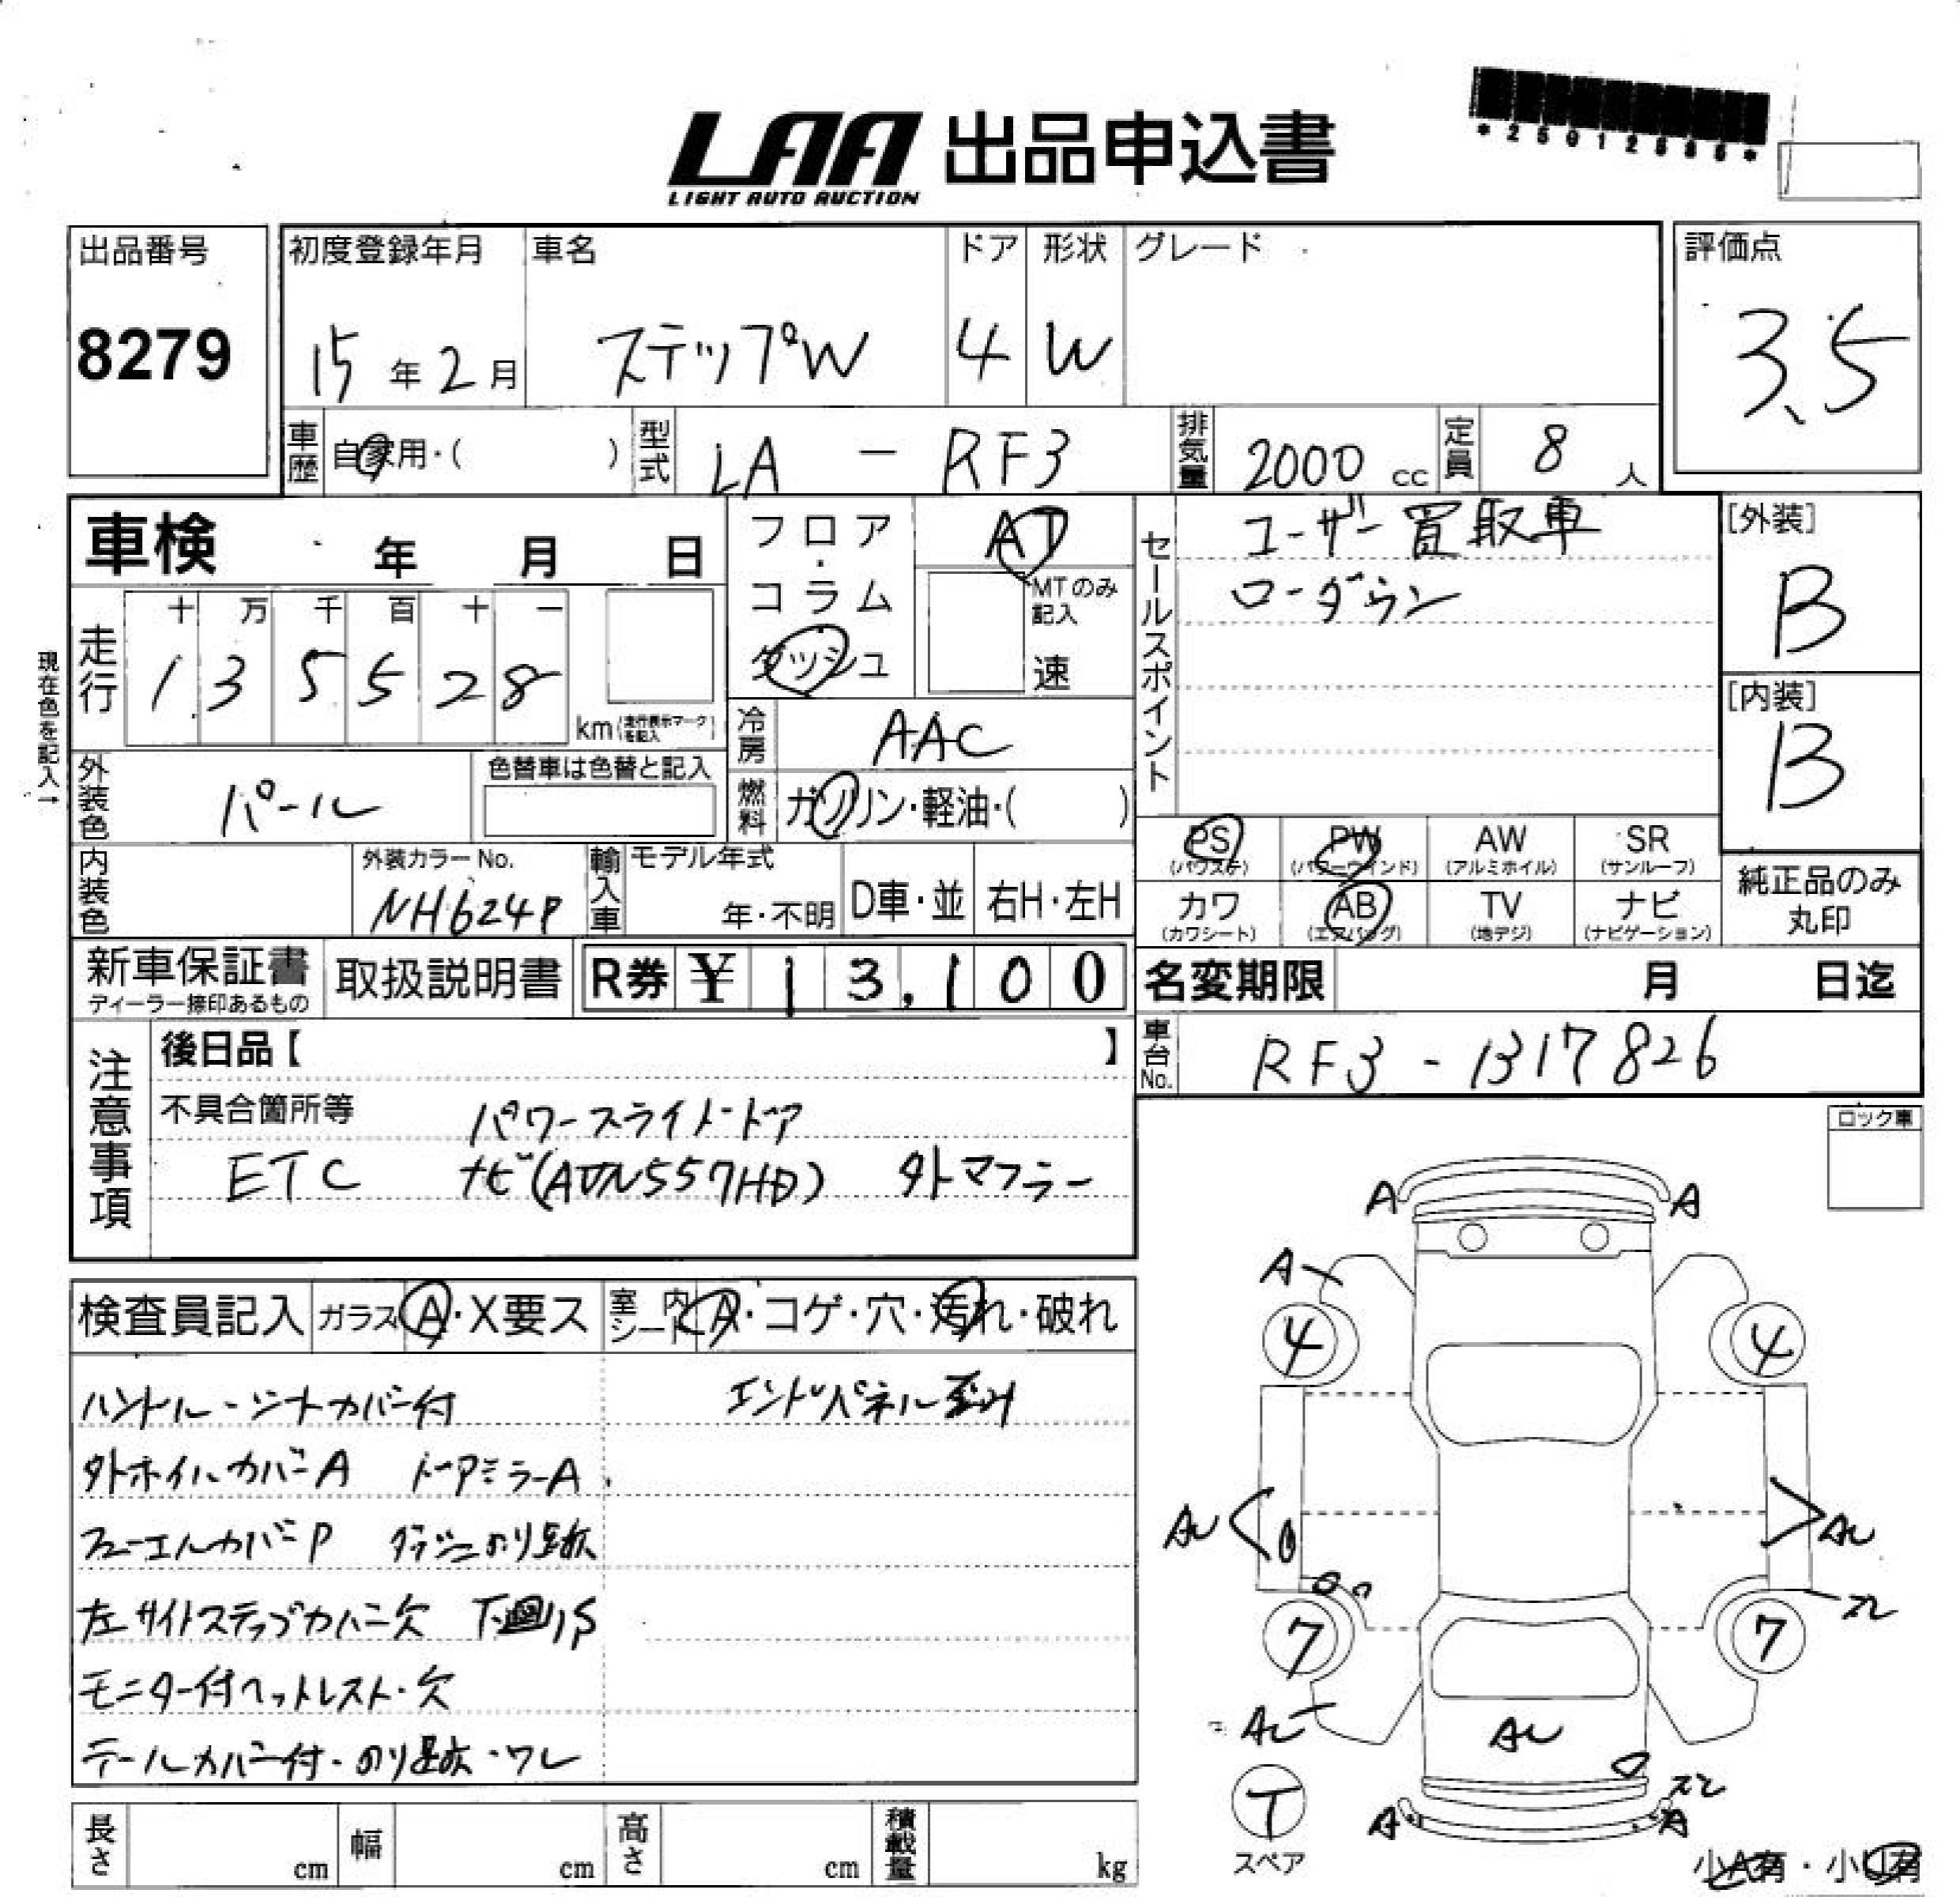 LAA 出品申込書
LIGHT AUTO AUCTION
出品番号 初度登録年月 車名 ドア 形状 グレード 評価点
8279 15年2月 ステップW 4 W 3.5
車歴 自家用・( ) 型式 LA - RF3 排気量 2000 cc 定員 8 人
車検 年 月 日 フロア・コラム ダッシュ AT
MTのみ記入 速
セールスポイント ユーザー買取車
ローダウン
[外装] B
[内装] B
現在色を記入→
走行 十 万 千 百 十 一
1 3 5 5 2 8 km(走行表示マークを記入)
冷房 AAC
外装色 パール 色替車は色替と記入 燃料 ガソリン・軽油・( )
PS (パワステ) PW (パワーウインド) AW (アルミホイル) SR (サンルーフ)
内装色 外装カラーNo. NH624P 輸入車 モデル年式 年・不明 D車・並 右H・左H
カワ (カワシート) AB (エアバッグ) TV (地デジ) ナビ (ナビゲーション)
純正品のみ丸印
新車保証書 ディーラー捺印あるもの 取扱説明書 R券 ¥ 13,100 名変期限 月 日迄
車台No. RF3 - 1317826
注意事項 後日品【 】
不具合箇所等 パワースライドドア
ETC ナビ(AVN557HD) 外マフラー
ロック車
検査員記入 ガラス A・X要ス 室内シート A・コゲ・穴・汚れ・破れ
ハンドル・シートカバー付 エンドパネル歪み
外ホイルカバーA ドアミラーA
フューエルカバーP ダッシュのり跡
左サイドステップカバー欠 下廻りS
モニター付ヘッドレスト・欠
テールカバー付・のり跡・ワレ
A A
A
4 4
AU AU
ズレ
7 7
AU AU
ズレ
T A A
スペア
長さ cm 幅 cm 高さ cm 積載量 kg
小A有・小U有